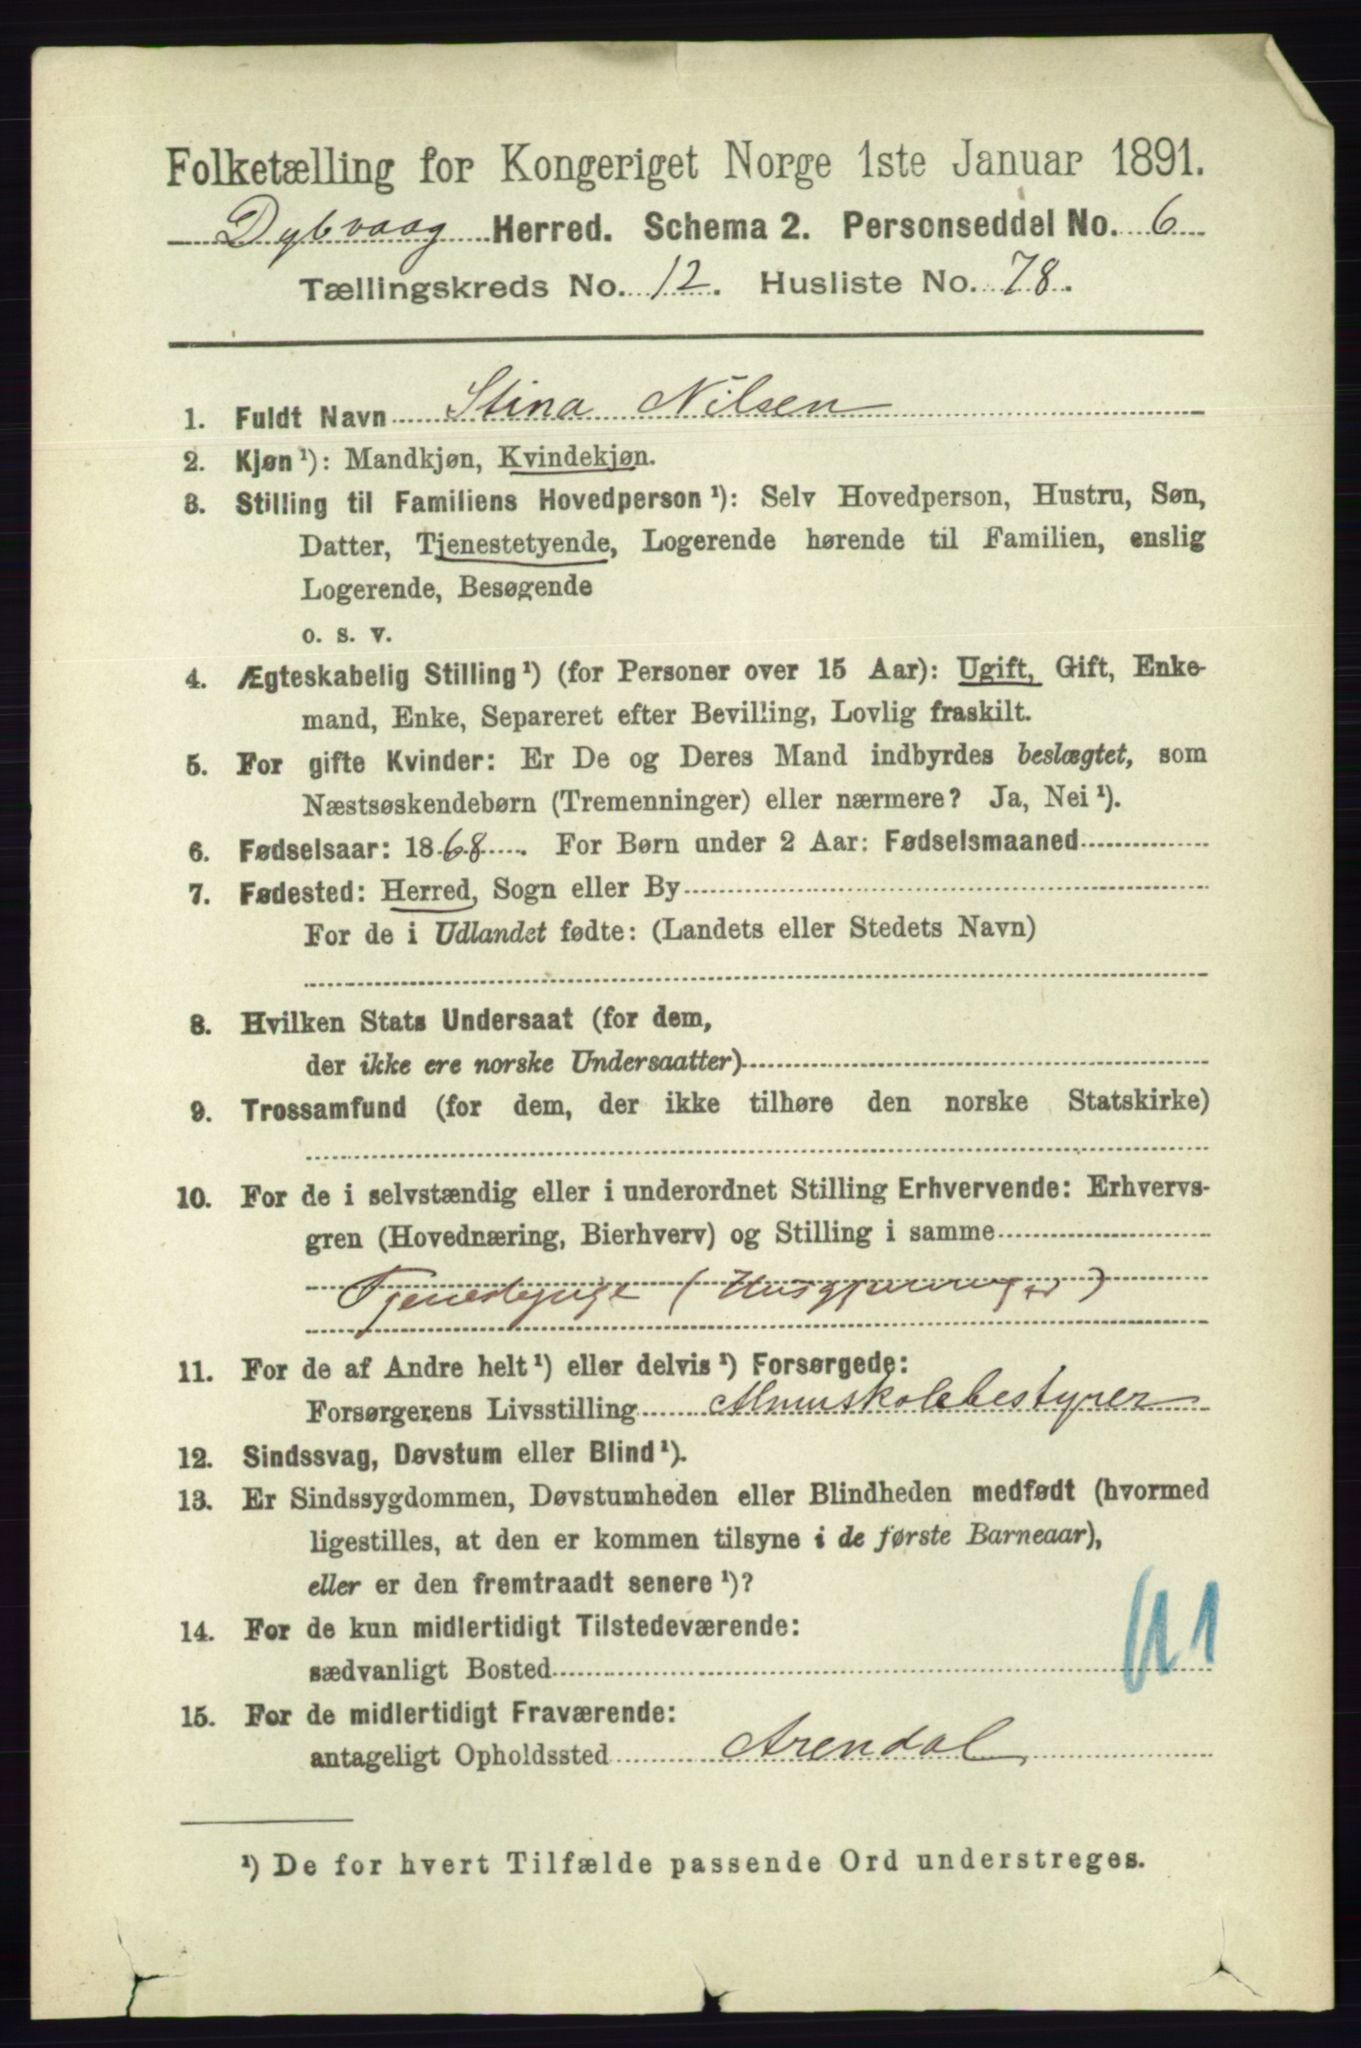 Folketælling for Kongeriget Norge 1ste Januar 1891.
Dybvaag Herred. Schema 2. Personseddel No. 6
Tællingskreds No. 12. Husliste No. 78.
1. Fuldt Navn Stina Nilsen
2. Kjøn¹): Mandkjøn, Kvindekjøn.
3. Stilling til Familiens Hovedperson¹): Selv Hovedperson, Hustru, Søn,
Datter, Tjenestetyende, Logerende hørende til Familien, enslig
Logerende, Besøgende
o. s. v.
4. Ægteskabelig Stilling¹) (for Personer over 15 Aar): Ugift, Gift, Enke-
mand, Enke, Separeret efter Bevilling, Lovlig fraskilt.
5. For gifte Kvinder: Er De og Deres Mand indbyrdes beslægtet, som
Næstsøskendebørn (Tremenninger) eller nærmere? Ja, Nei¹).
6. Fødselsaar: 1868. For Børn under 2 Aar: Fødselsmaaned
7. Fødested: Herred, Sogn eller By
For de i Udlandet fødte: (Landets eller Stedets Navn)
8. Hvilken Stats Undersaat (for dem,
der ikke ere norske Undersaatter)
9. Trossamfund (for dem, der ikke tilhøre den norske Statskirke)
10. For de i selvstændig eller i underordnet Stilling Erhvervende: Erhvervs-
gren (Hovednæring, Bierhverv) og Stilling i samme
Tjenestepige (Husgjerninger)
11. For de af Andre helt¹) eller delvis¹) Forsørgede:
Forsørgerens Livsstilling Almuskolebestyrer
12. Sindssvag, Døvstum eller Blind¹).
13. Er Sindssygdommen, Døvstumheden eller Blindheden medfødt (hvormed
ligestilles, at den er kommen tilsyne i de første Barneaar),
eller er den fremtraadt senere¹)?
14. For de kun midlertidigt Tilstedeværende:
sædvanligt Bosted
15. For de midlertidigt Fraværende:
antageligt Opholdssted Arendal
¹) De for hvert Tilfælde passende Ord understreges.